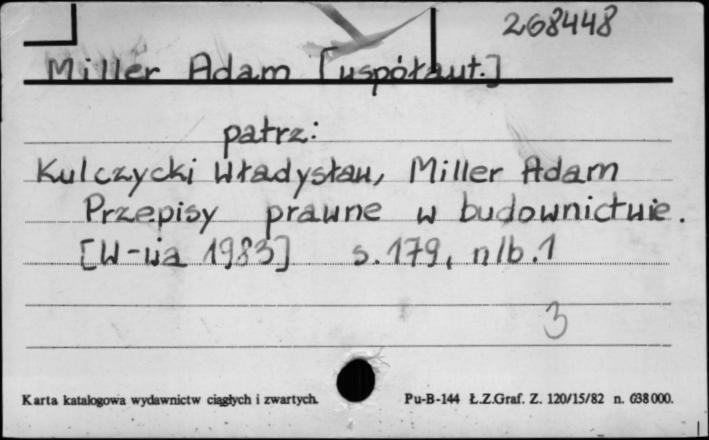 268448
Miller Adam [współaut.]
patrz:
Kulczycki Władysław, Miller Adam
Przepisy prawne w budownictwie.
[W-wa 1983] s. 179, nlb. 1
3
Karta katalogowa wydawnictw ciągłych i zwartych. Pu-B-144 Ł.Z.Graf. Z. 120/15/82 n. 638 000.